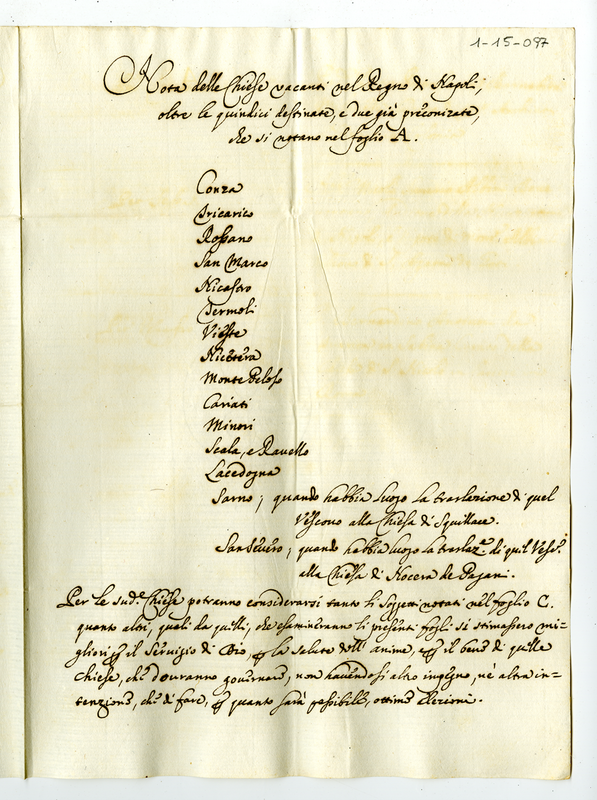 1-15-097
Nota delle Chiese vacanti nel Regno di Napoli,
oltre le quindici destinate, e due già preconizate,
che si notano nel foglio A.
Conza
Tricarico
Rossano
San Marco
Nicastro
Termoli
Vieste
Monte Peloso
Cariati
Minori
Scala, e Ravello
Lacedogna
Sarno; quando habbia luogo la traslazione di quel
Vescovo alla Chiesa di Squillace.
San Severo; quando habbia luogo la traslaz.e di quel Vesc.o
alla Chiesa di Nocera de Pagani.
Per le sud.e Chiese potranno considerarsi tanto li soggetti notati nel foglio C.
quanto altri, quali da quelli, che esamineranno li presenti fogli si stimassero mi-
gliori per il Servizio di Dio, per la salute dell' anime, per il bene di quelle
Chiese, che dovranno governare, non havendosi altro impegno, nè altra in-
tenzione, che di fare, per quanto sarà possibile, ottime Elezioni.